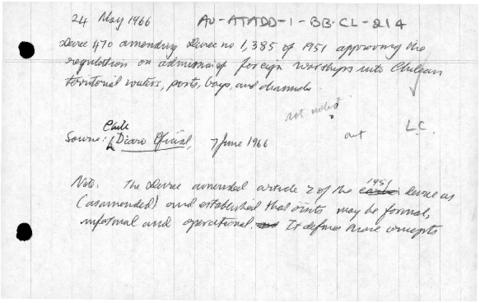 24 May 1966 AU-ATADD-1-BB-CL-214
Decree 470 amending Decree no 1,385 of 1951 approving the
regulation on admission of foreign warships into Chilean
territorial waters, ports, bays, and channels
not noted
out L.C.
Chile
Source: Diario Oficial, 7 June 1966
1951
Note. The decree amended article 2 of the decree as
(as amended) and established that visits may be formal,
informal and operational. It defines these concepts